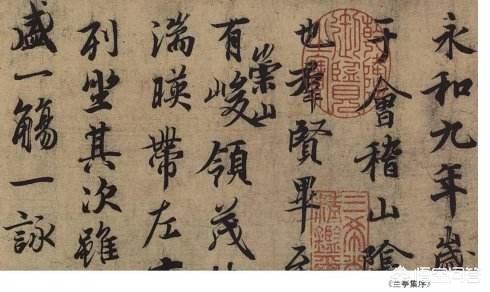 永和九年歲
于會稽山陰
也羣賢畢至
有崇山峻領茂
湍暎帶左
列坐其次雖
盛一觴一詠
《兰亭集序》
悟空问答